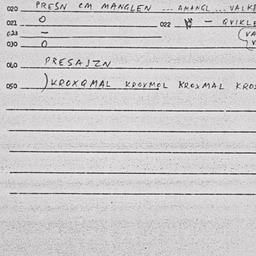 020 PRESN CM MANGLEN ... AMANGL ... VALKE
021 O 022 – QVIKLE
023 – (VA
030 O V
040 PRESAJZN
050 )KROXQMAL KROXMOL KROXMAL KROX